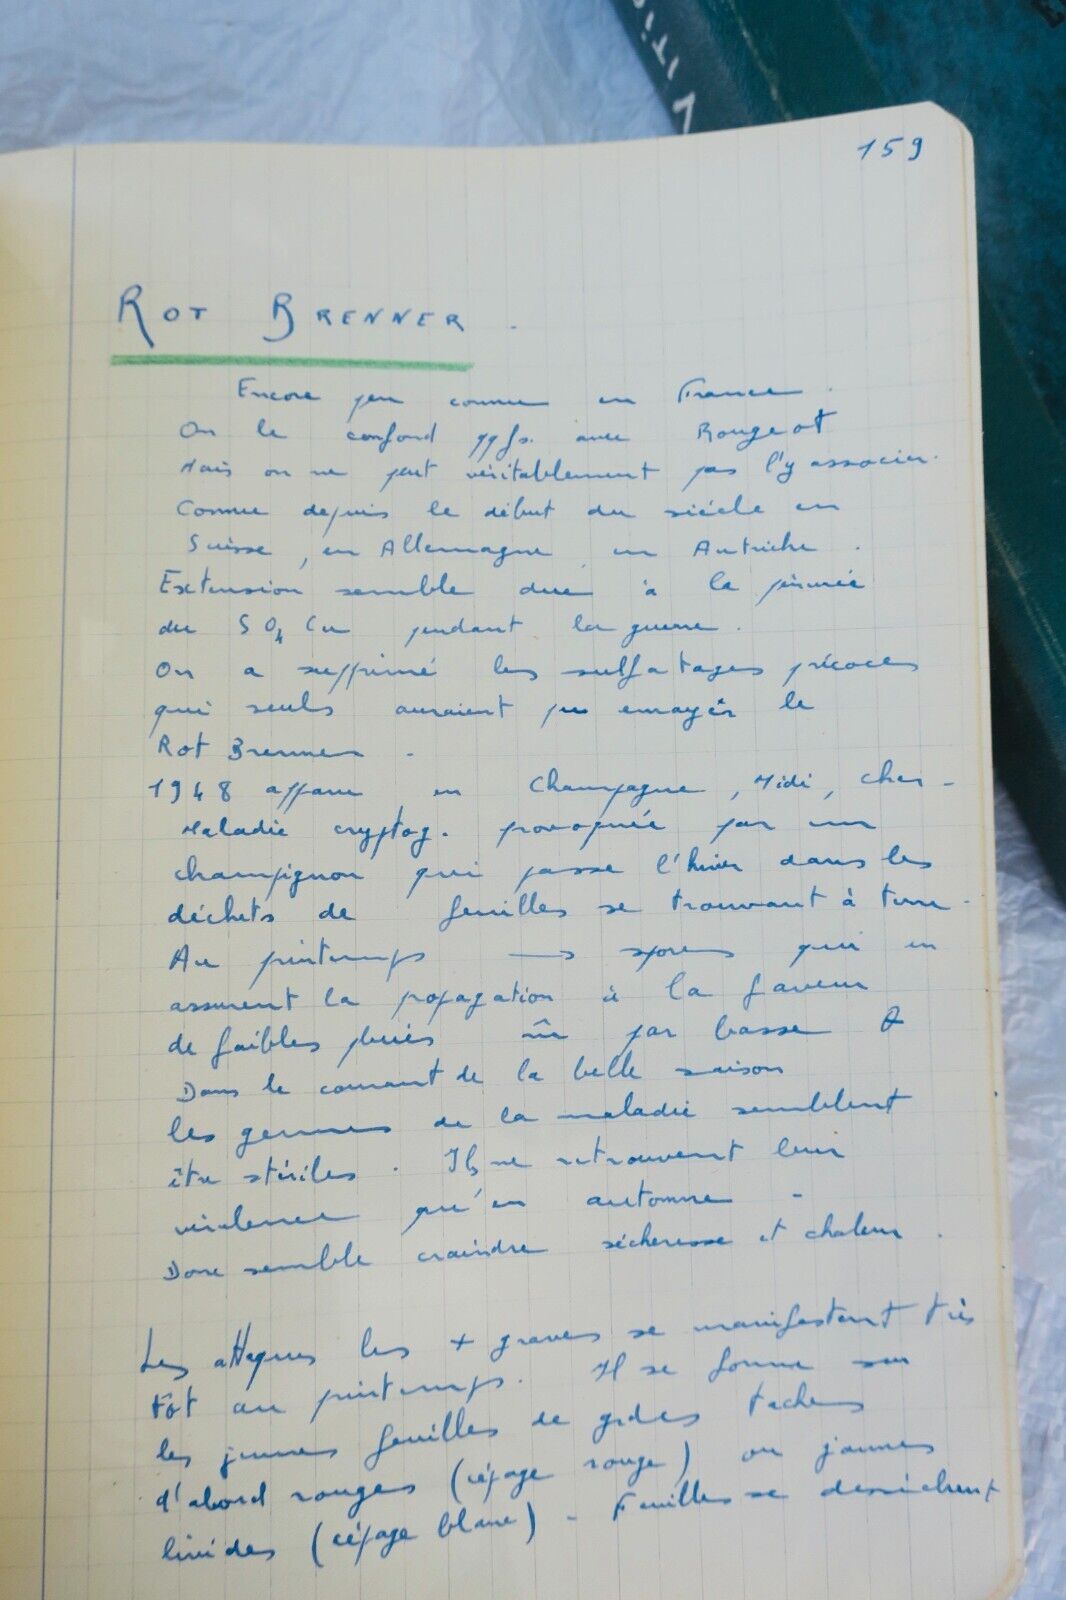 VITI
159
ROT BRENNER.
Encore peu connue en France.
On le confond qqfs. avec Rougeot
Mais on ne peut véritablement pas l'y associer.
Connue depuis le début du siècle en
Suisse, en Allemagne en Autriche.
Extension semble due à la pénurie
du SO4 Cu pendant la guerre.
On a supprimé les sulfatages précoces
qui seuls auraient pu enrayer le
Rot Brenner.
1948 apparu en Champagne, Midi, Cher -
Maladie cryptog. provoquée par un
champignon qui passe l'hiver dans les
déchets de feuilles se trouvant à terre.
Au printemps → spores qui en
assurent la propagation à la faveur
de faibles pluies m̂ par basse θ
Dans le courant de la belle saison
les germes de la maladie semblent
être stériles. Ils ne retrouvent leur
virulence qu'en automne -
Donc semble craindre sécheresse et chaleur.
Les attaques les + graves se manifestent très
tôt au printemps. Il se forme sur
les jeunes feuilles de gdes taches
d'abord rouges (cépage rouge) ou jaunes
livides (cépage blanc) - Feuilles se dessèchent